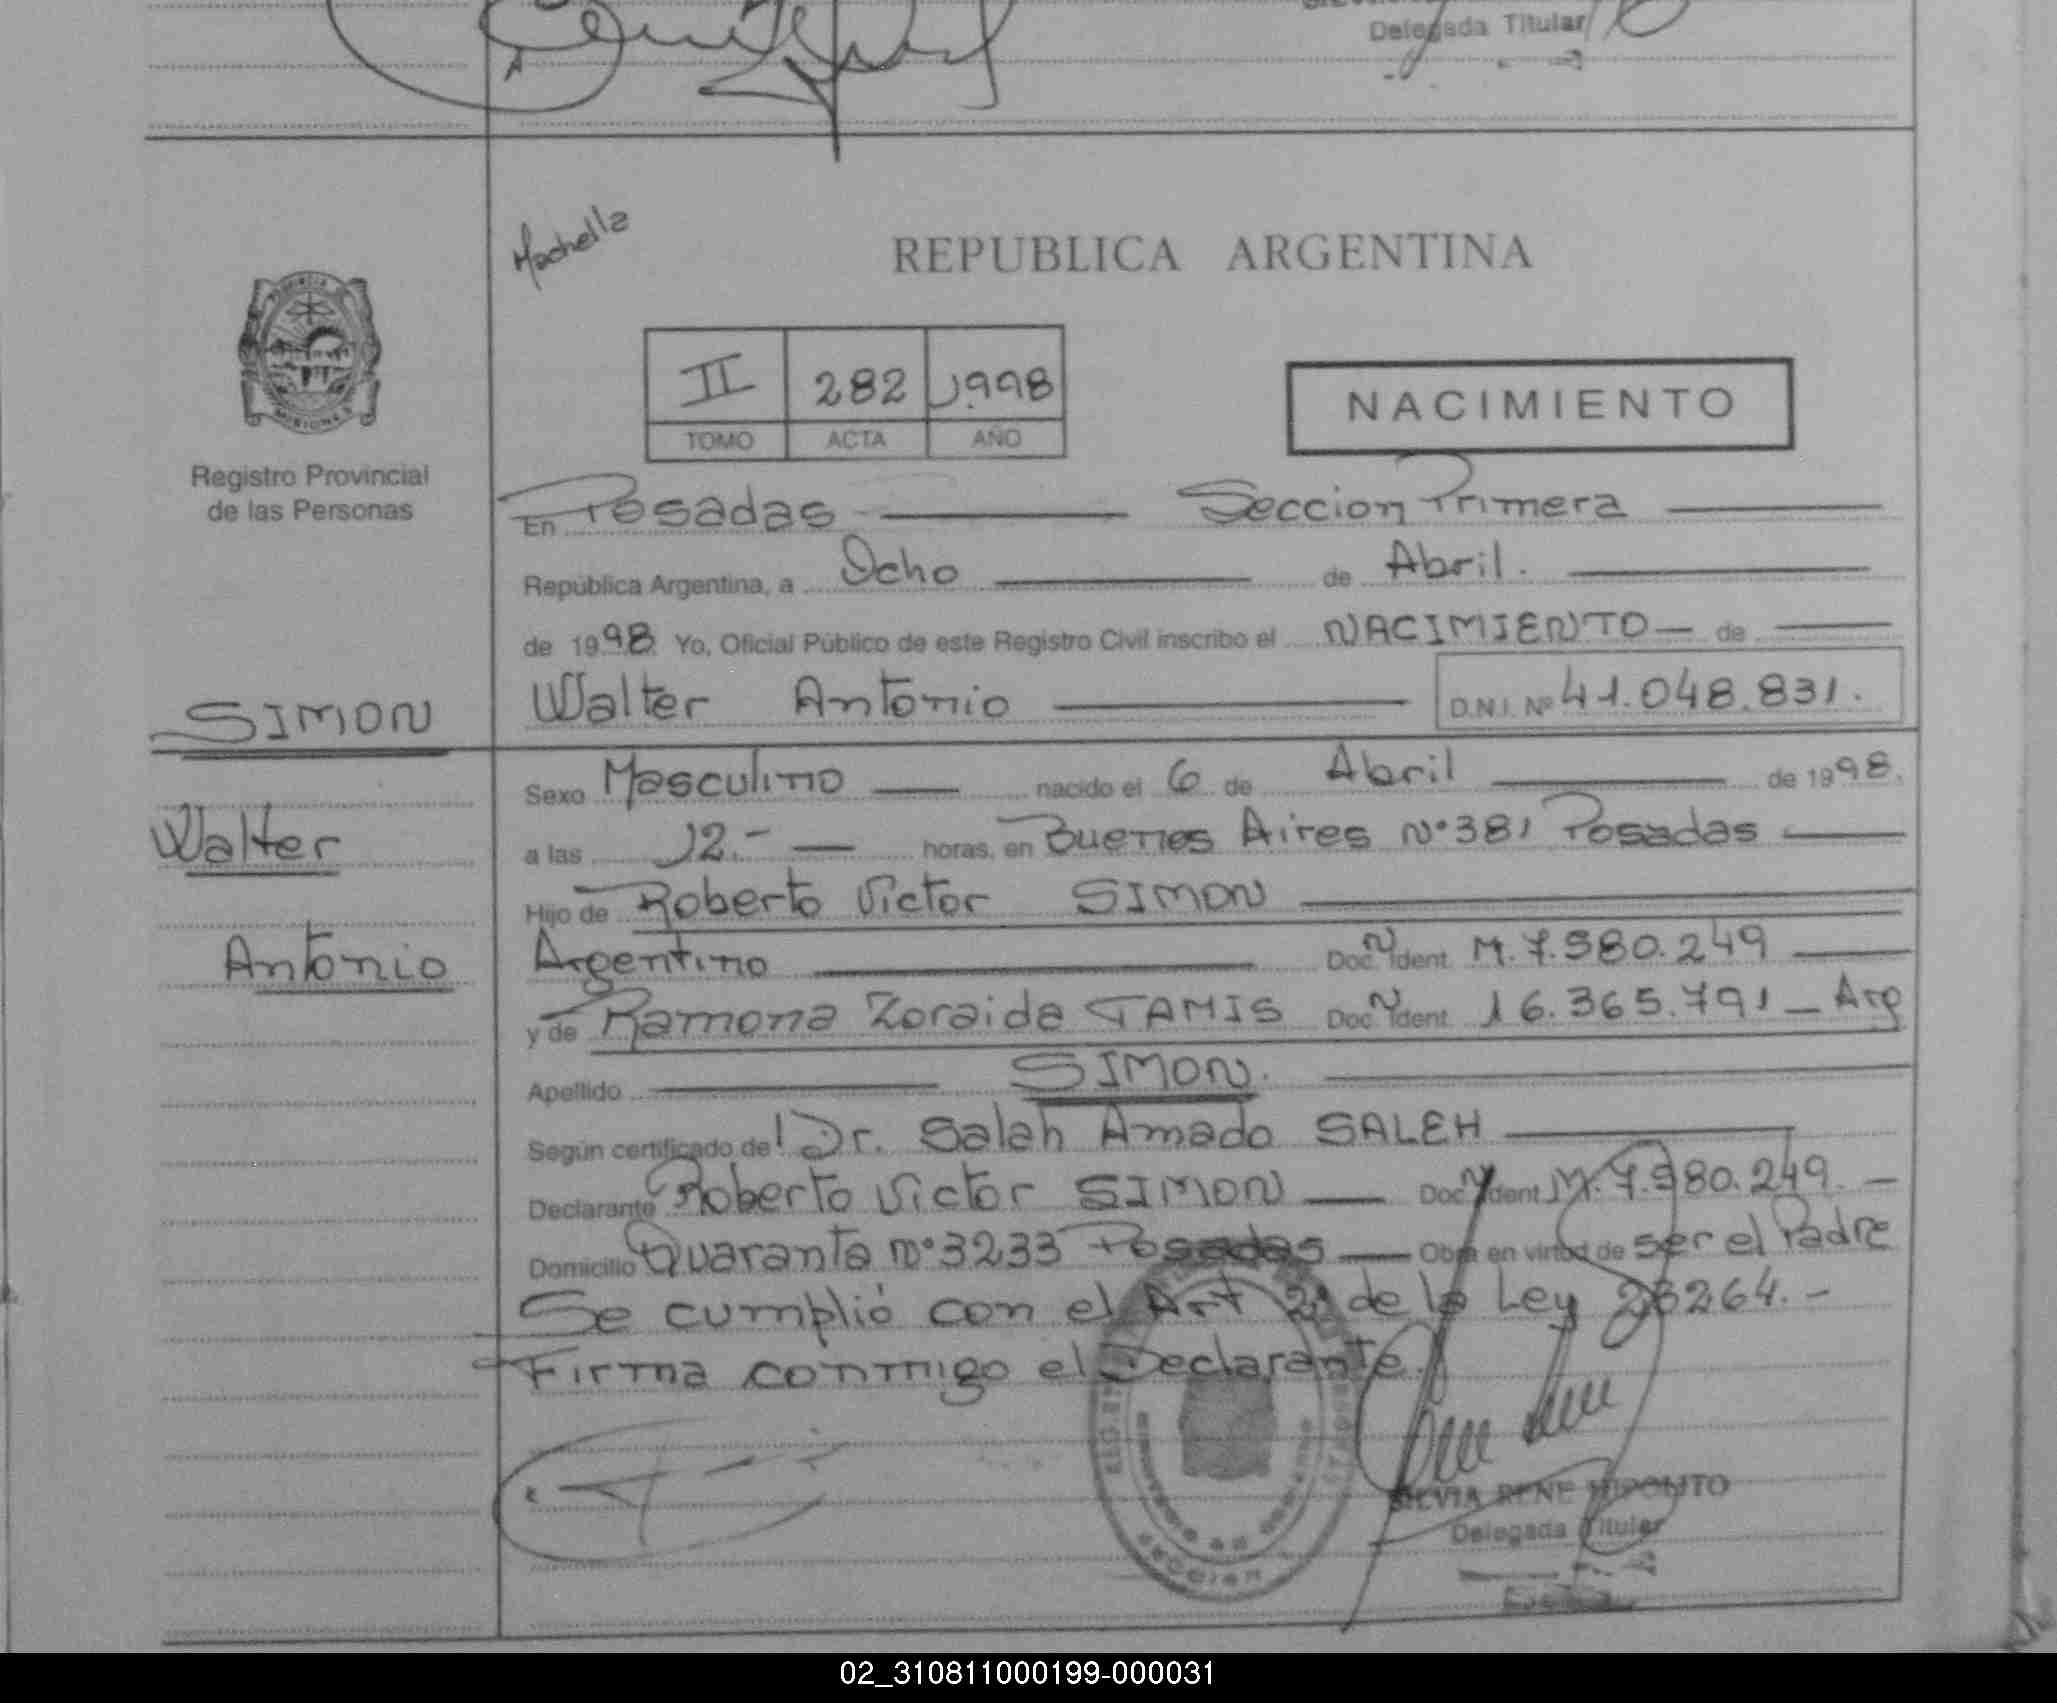 Delegada Titular
Machella
REPUBLICA ARGENTINA
II 282 1998
TOMO ACTA AÑO
NACIMIENTO
Registro Provincial
de las Personas
En Posadas Seccion Primera
República Argentina, a Ocho de Abril.
de 1998 Yo, Oficial Público de este Registro Civil inscribo el NACIMIENTO de
SIMON
Walter Antonio D.N.I. Nº 41.048.831.
Sexo Masculino nacido el 6 de Abril de 1998.
Walter
a las 12.- horas, en Buenos Aires Nº 381 Posadas
Hijo de Roberto Victor SIMON
Antonio
Argentino Doc. Ident M. 7.980.249
y de Ramona Zoraida TAMIS Doc. Ident 16.365.791 Arg
Apellido SIMON.
Según certificado de Dr. Salah Amado SALEH
Declarante Roberto Victor SIMON Doc. Ident M. 7.980.249.
Domicilio Quaranta Nº 3233 Posadas Obra en virtud de ser el Padre
Se cumplió con el Art 2º de la Ley 23264.-
Firma conmigo el Declarante.
SILVIA RENE HIPOLITO
Delegada Titular
SECCION
02_310811000199-000031